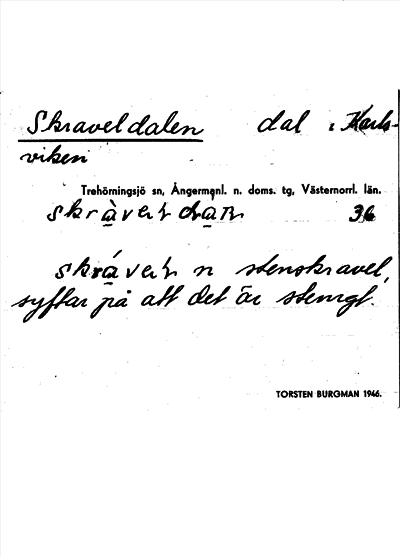 Skraveldalen dal i Karls-
viken
Trehörningsjö sn, Ångermanl. n. doms. tg, Västernorrl. län.
skràvel dàɳ 36
skráveɫ n stenskravel,
syftar på att det är stenigt.
TORSTEN BURGMAN 1946.